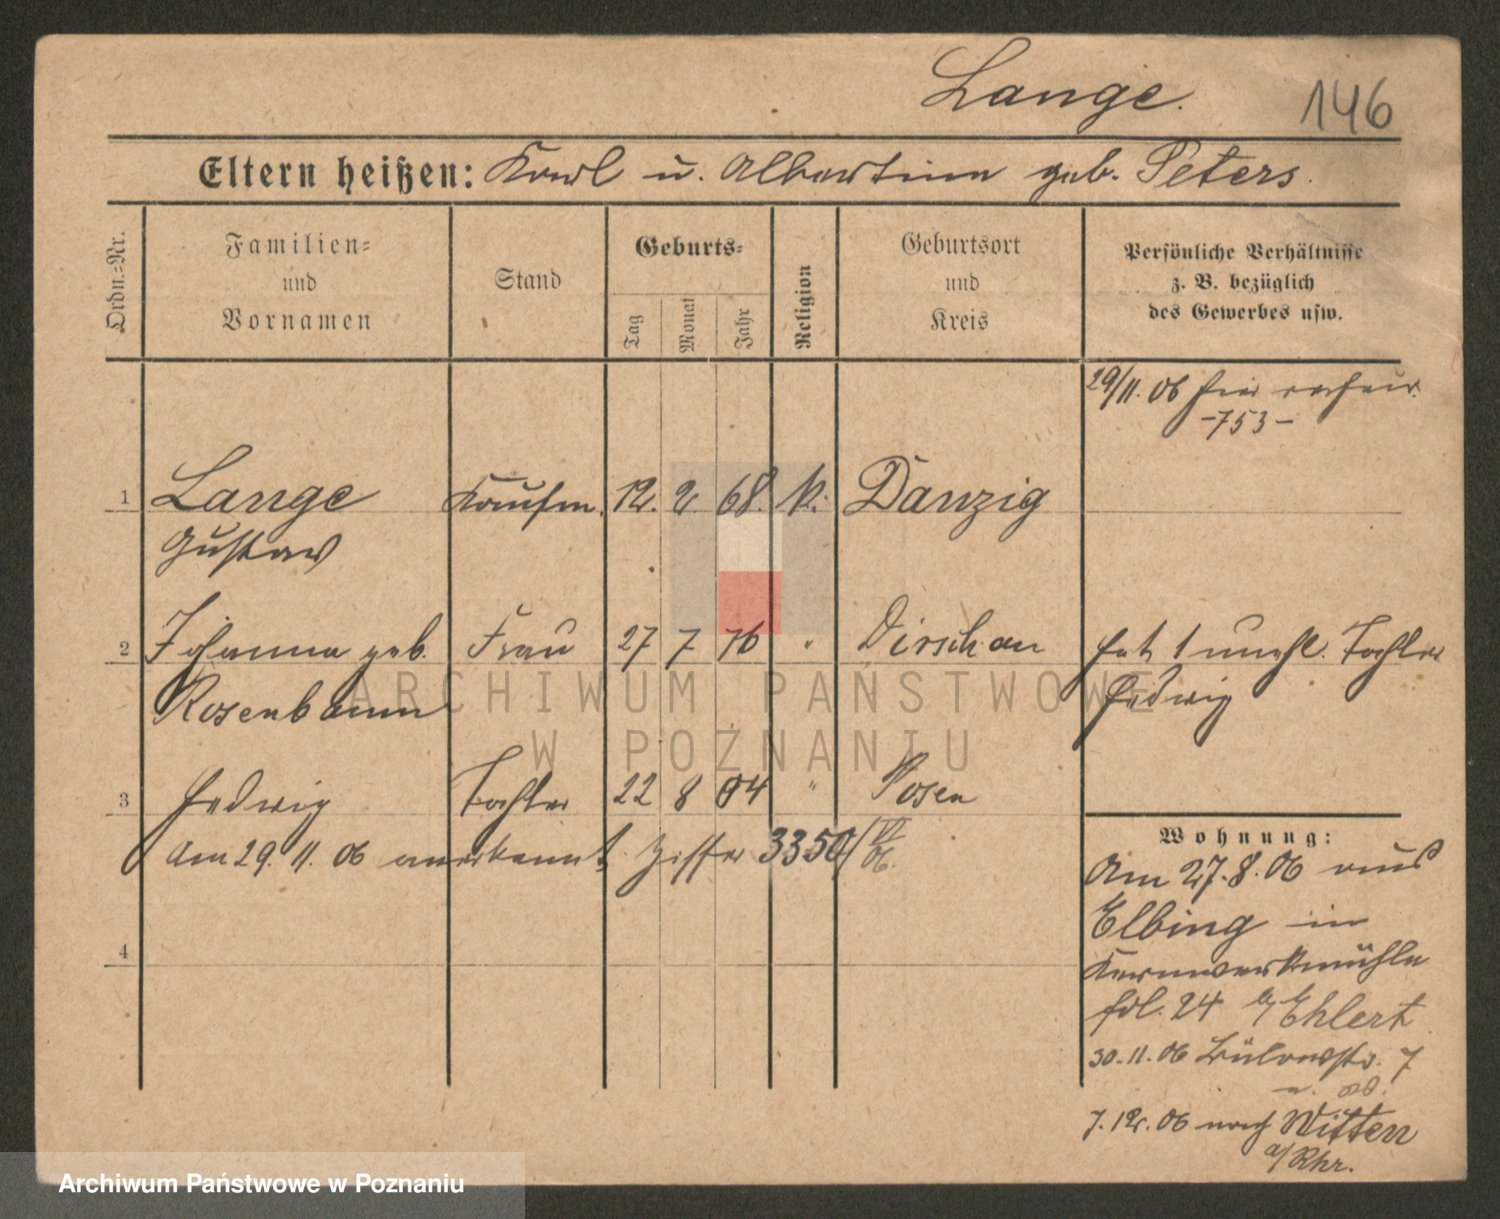 Lange.
146
Eltern heißen: Karl u. Albertine geb. Peters.
Ordn.=Nr.
Familien=
und
Vornamen
Stand
Geburts=
Tag
Monat
Jahr
Religion
Geburtsort
und
Kreis
Persönliche Verhältnisse
z. B. bezüglich
des Gewerbes usw.
29/11. 06 hier
-753-
1 Lange Kaufm. 12. 2 68. k. Danzig
Gustav
2 Johanna geb. Frau 27 7 76 " Dirschau hat 1 unehl. Tochter
Rosenbaum Hedwig
3 Hedwig Tochter 22 8 04 " Posen
Am 29. 11. 06 anerkannt Ziffer 3350/VI
06.
4
Wohnung:
Am 27. 8. 06 aus
Elbing in
Kernwerkmühle
fol. 24 b/ Ehlert
30. 11. 06 Bülowstr. 7
7. 12. 06 nach Witten
a/Rhr.
ARCHIWUM PAŃSTWOWE
W POZNANIU
Archiwum Państwowe w Poznaniu